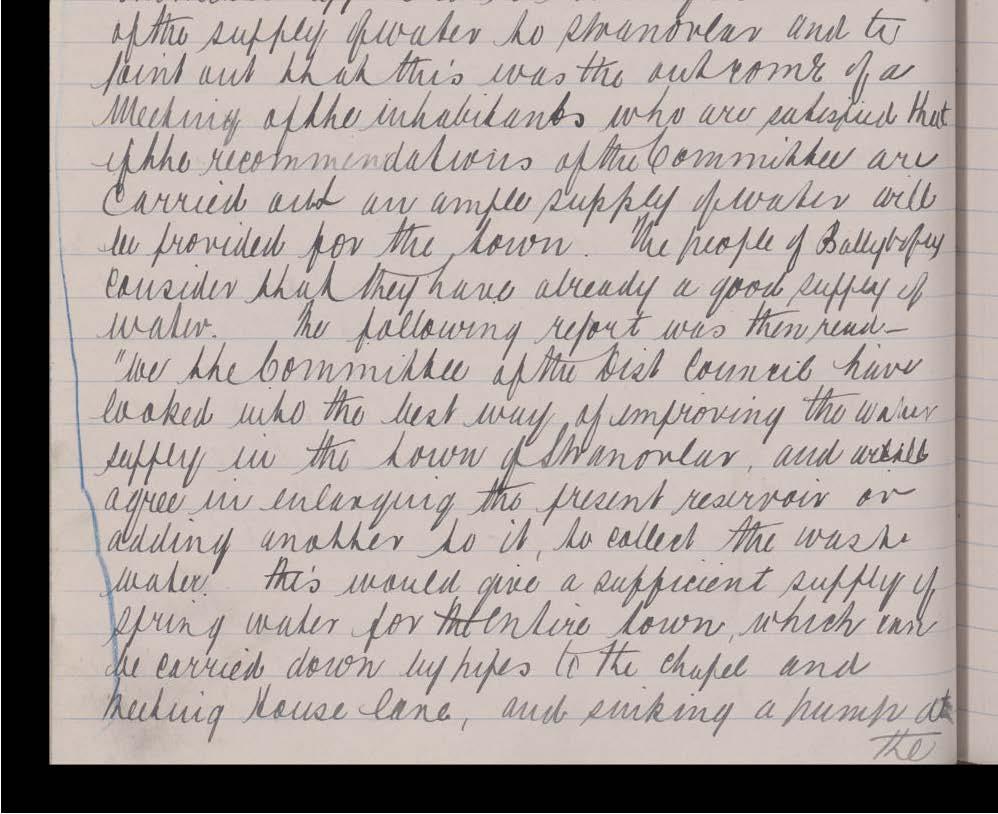 of the supply of water to Stranorlar and to
point out that this was the outcome of a
Meeting of the inhabitants who are satisfied that
if the recommendations of the Committee are
Carried out an ample supply of water will
be provided for the town. The people of Ballybofey
consider that they have already a good supply of
water. The following report was then read—
"We the Committee of the Dist Council have
looked into the best way of improving the water
supply in the town of Stranorlar, and
agree in enlarging the present reservoir or
adding another to it, to collect the waste
water. this would give a sufficient supply of
spring water for the Entire town, which can
be carried down by pipes to the chapel and
Meeting House lane, and sinking a pump at
the